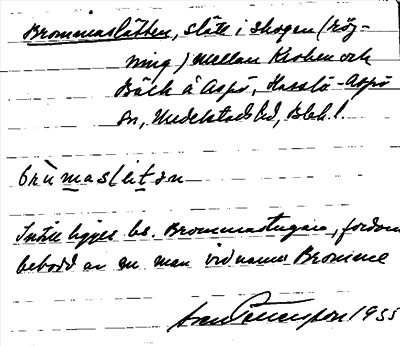 Brommaslätten, slätt i skogen (röj-
ning) mellan Kroken och
Bäck å Aspö, Hasslö-Aspö
sn, Medelstads hd, Blek l.
brùmasletən
Intill ligger bs. Brommastugan, fordom
bebodd av en man vid namn Bromme
Pettersson 1955